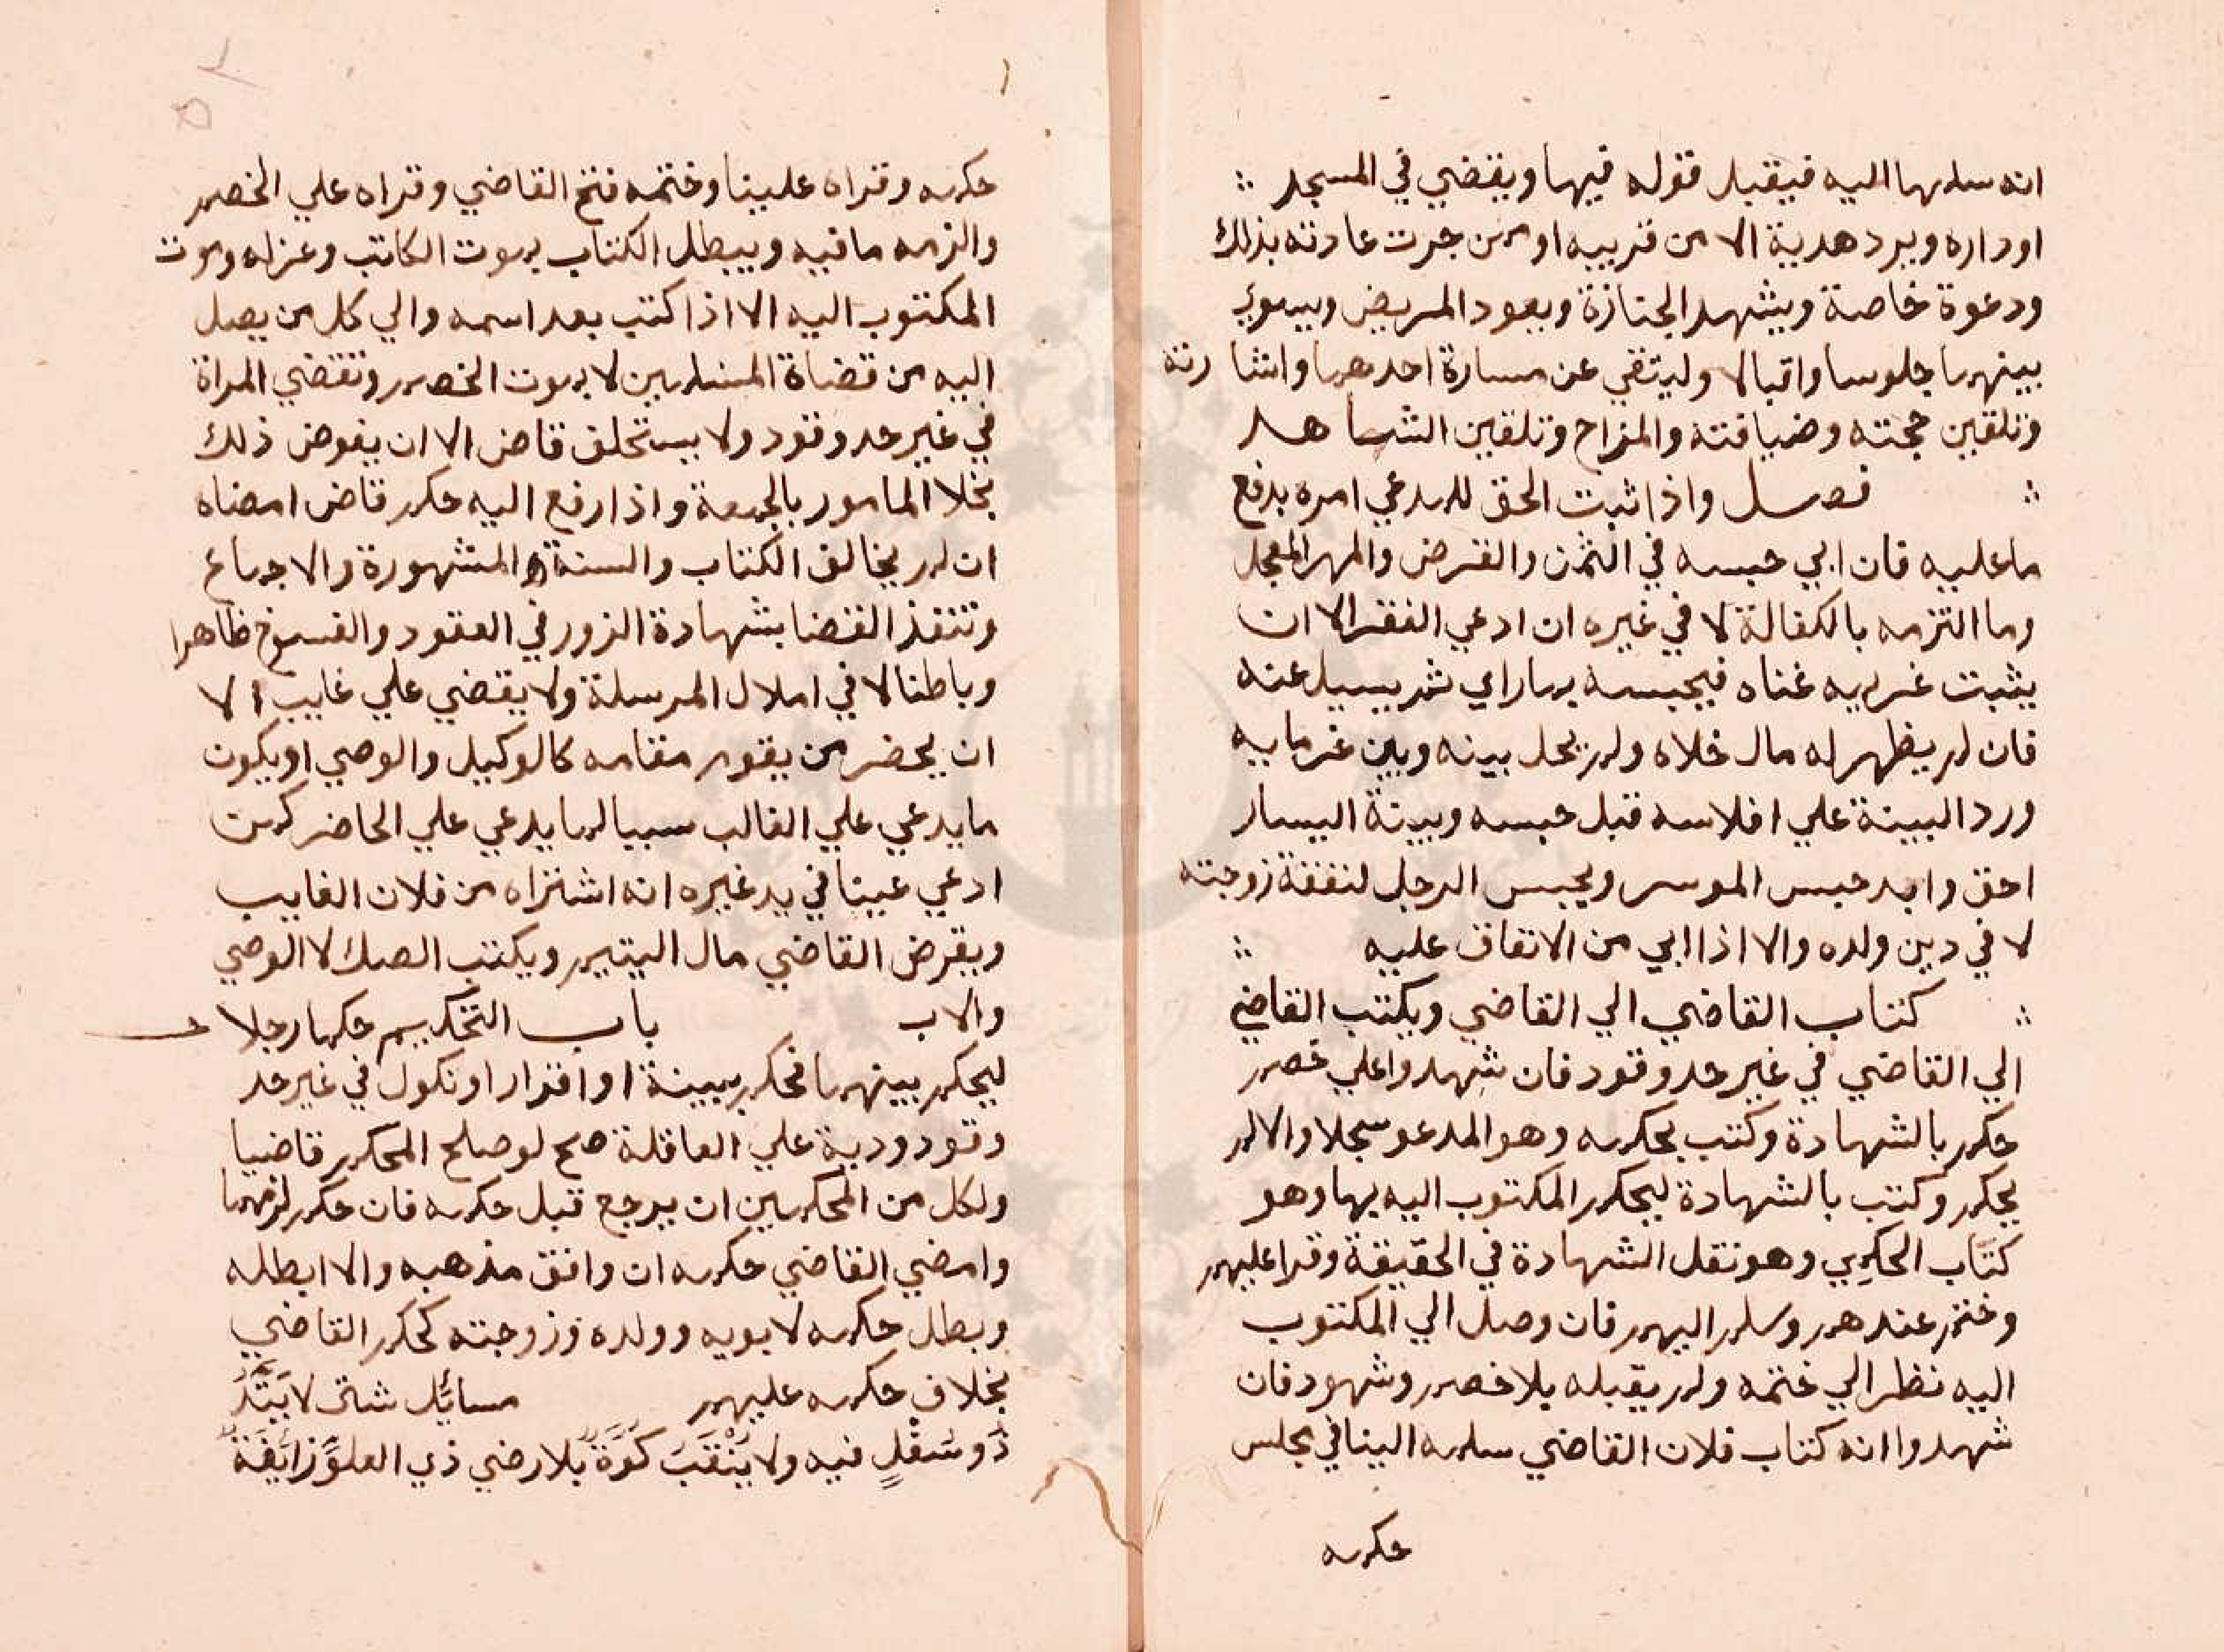 انه سلمها اليه فيقبل قوله فيها ويقضي في المسجد
اوداره ويرد هدية الا من قريبه او من جرت عادته بذلك
ودعوة خاصة ويشهد الجنازة ويعود المريض ويسوي
بينهما جلوسا واقبالا وليتقي عن مسارة احدهما واشارته
وتلقين حجته وضيافته والمزاح وتلقين الشاهد
فصل واذا ثبت الحق للمدعي امره بدفع
ما عليه فان ابي حبسه في الثمن والقرض والمهر المعجل
وما التزمه بالكفالة لا في غيره ان ادعي الفقر الا ان
يثبت غريمه غناه فيحبسه بما راي ثم يسيل عنه
فان لم يظهر له مال خلاه ولم يحل بينه وبين غرمايه
ورد البينة علي افلاسه قبل حبسه وبينة اليسار
احق وابد حبس الموسر ويحبس الرجل لنفقة زوجته
لا في دين ولده والا اذا ابي من الاتفاق عليه
كتاب القاضي الي القاضي ويكتب القاضي
الي القاضي في غير حد وقود فان شهدوا علي خصم
حكم بالشهادة وكتب بحكمه وهو المدعو سجلا والا لم
يحكم وكتب بالشهادة ليحكم المكتوب اليه بها وهو
كتاب الحكمي وهو نقل الشهادة في الحقيقة وقرا عليهم
وختم عندهم وسلم اليهم فان وصل الي المكتوب
اليه نظر الي ختمه ولم يقبله بلا خصم وشهود فان
شهدوا انه كتاب فلان القاضي سلمه الينا في مجلس
حكمه
حكمه وقراه علينا وختمه فتح القاضي وقراه علي الخصم
والزمه ما فيه ويبطل الكتاب بموت الكاتب وعزله وموت
المكتوب اليه الا اذا كتب بعد اسمه والي كل من يصل
اليه من قضاة المسلمين لا بموت الخصم وتقضي المراة
في غير حد وقود ولا يستخلف قاض الا ان يفوض ذلك
بخلا المامور بالجمعة واذا رفع اليه حكم قاض امضاه
ان لم يخالف الكتاب والسنة المشهورة والاجماع
وتنفذ القضا بشهادة الزور في العقود والفسوخ ظاهرا
وباطنا لا في املال المرسلة ولا يقضي علي غايب الا
ان يحضر من يقوم مقامه كالوكيل والوصي او يكون
ما يدعي علي الغالب سببا لما يدعي علي الحاضر كمن
ادعي عينا في يد غيره انه اشتراه من فلان الغايب
ويقرض القاضي مال اليتيم ويكتب الصك لا الوصي
والاب باب التحكيم حكما رجلا
ليحكم بينهما فحكم ببينة او اقرار او نكول في غير حد
وقود ودية علي العاقلة صح لو صلح المحكم قاضيا
ولكل من المحكمين ان يرجع قبل حكمه فان حكم لزمهما
وامضي القاضي حكمه ان وافق مذهبه والا ابطله
وبطل حكمه لابويه وولده وزوجته كحكم القاضي
بخلاف حكمه عليهم مسائل شتى لا يَتِدُ
ذو سُفْلٍ فيه ولا يَنْقَبَ كَوَّةً بلا رضي ذي العلوّ زايغة